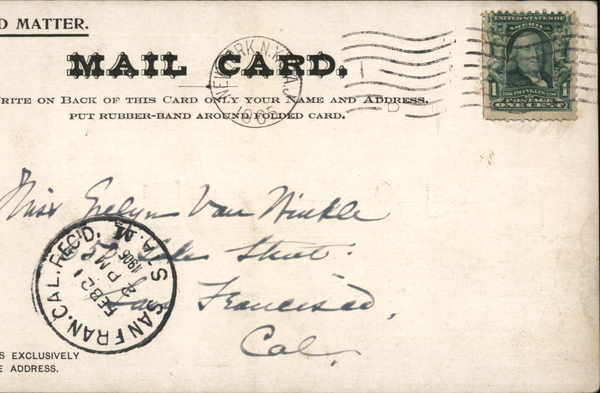 D MATTER.
MAIL CARD.
WRITE ON BACK OF THIS CARD ONLY YOUR NAME AND ADDRESS.
PUT RUBBER-BAND AROUND FOLDED CARD.
NEW YORK, N.Y. STA.
1905
D
UNITED STATES OF
AMERICA
1 FRANKLIN 1
POSTAGE
ONE CENT
Miss Evelyn Van Winkle
Street:
San Francisco,
Cal.
SAN FRAN. CAL. REC'D. STA.
FEB 21
2 PM
1905
S EXCLUSIVELY
E ADDRESS.